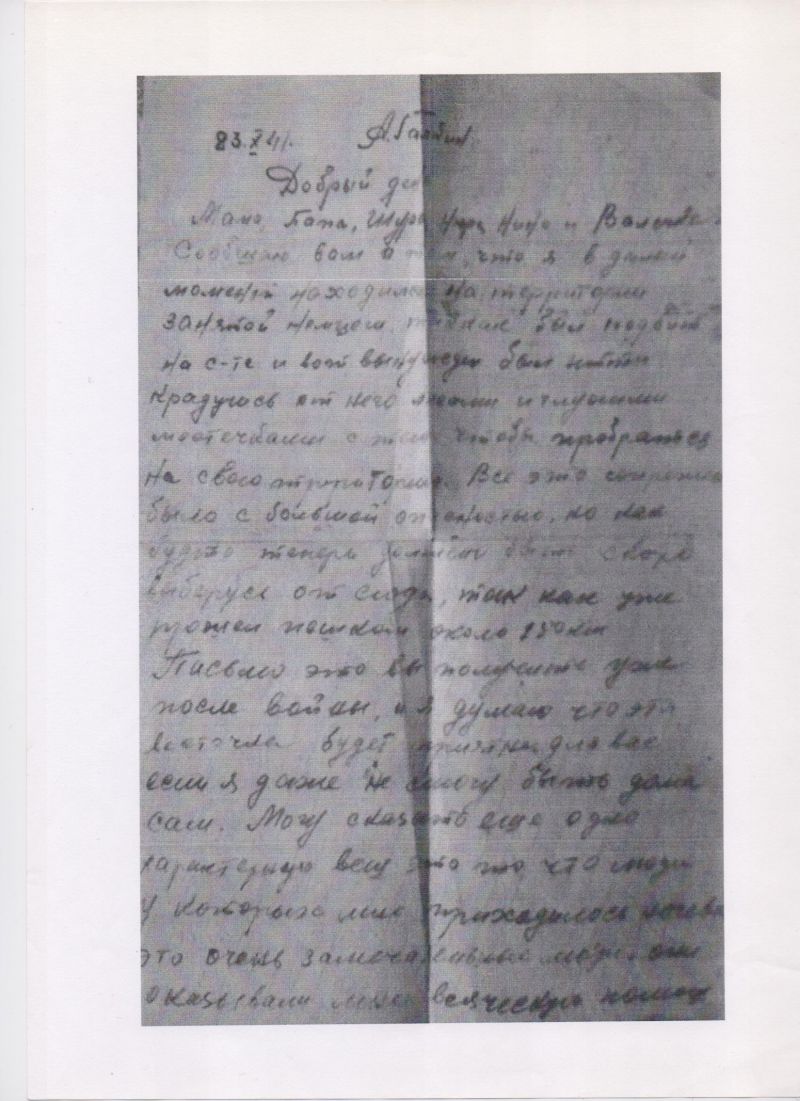 23.X 41. А.Галкин
Добрый де
Мама, Папа, Шура Нина и
Сообщаю вам о том, что я в даный
момент находился на территории
занятой немцом, так как был подбит
на с-те и вот вынужден был итти
крадучись от него лесами и глухими
местечками с тем чтобы пробраться
на свою територию. Все это сопряжено
было с большой опасностью, но как
будто теперь должен быть скоро
выберусь от сюда, так как уже
прошел пешком около км
Письмо это вы получите уже
после войны, и я думаю что эта
весточка будет приятна для вас
если я даже не смогу быть дома
сам. Могу сказать еще одно
характерную вещ это то что люди
у которых мне приходилось ночева
это очень замечательные люди, они
оказывали мне всяческую помощ